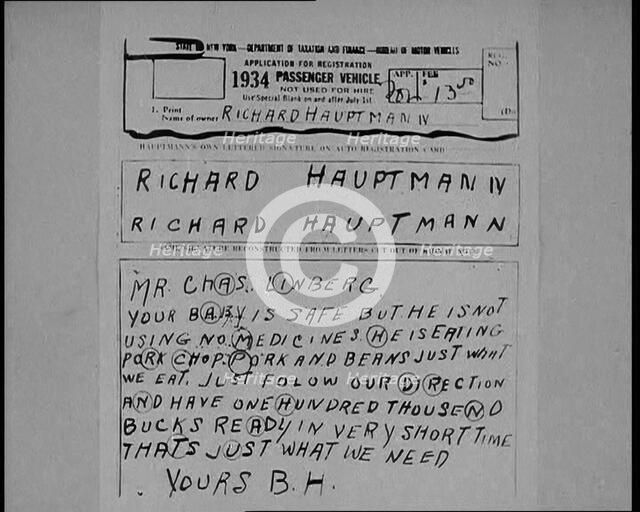 STATE OF NEW YORK—DEPARTMENT OF TAXATION AND FINANCE—BUREAU OF MOTOR VEHICLES
APPLICATION FOR REGISTRATION
1934 PASSENGER VEHICLE
NOT USED FOR HIRE
Use Special Blank on and after July 1st
APP. FEE
$ 13 50
REG.
NO.
1. Print
Name of owner RICHARD HAUPTMAN IV
HAUPTMANN'S OWN LETTERED SIGNATURE ON AUTO REGISTRATION CARD
RICHARD HAUPTMAN IV
RICHARD HAUPTMANN
SIGNATURE RECONSTRUCTED FROM LETTERS CUT OUT OF
MR. CHAS. LINBERG
YOUR BABY IS SAFE BUT HE IS NOT
USING NO MEDICINES. HE IS EATING
PORK CHOP PORK AND BEANS JUST WHAT
WE EAT. JUST FOLOW OUR DIRECTION
AND HAVE ONE HUNDRED THOUSEND
BUCKS READY IN VERY SHORT TIME
THATS JUST WHAT WE NEED
YOURS B.H.
Heritage
Heritage
Heritage
Heritage
Heritage
Heritage
©